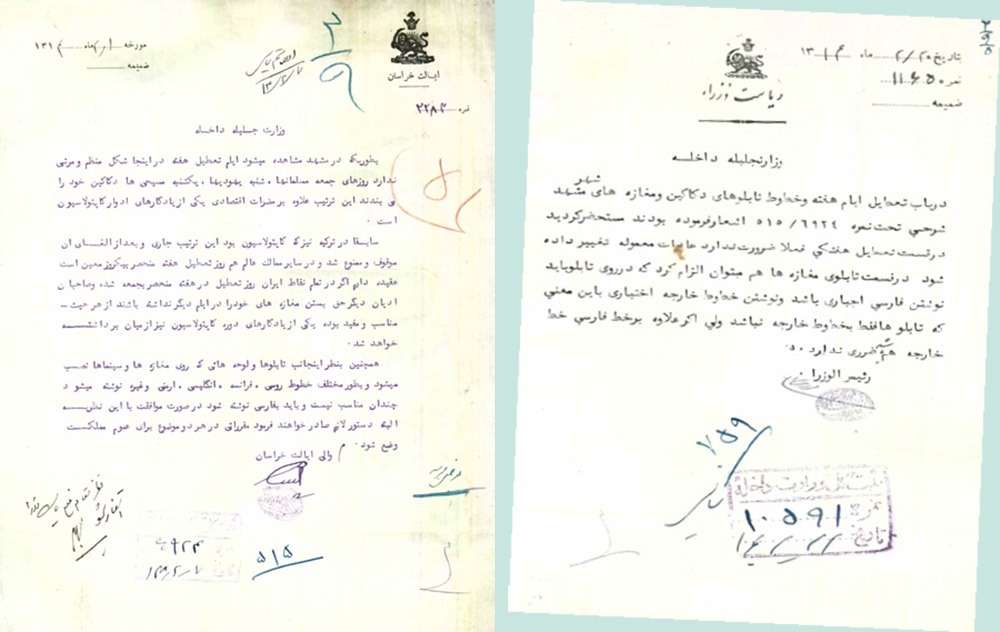 ایالت خراسان
مورخه ماه ۱۳۱
ضمیمه
نمره ۲۲۸۳
وزارت جلیله داخله
بطوریکه در مشهد مشاهده میشود ایام تعطیل هفته در اینجا شکل منظم و مرتبی
ندارد روزهای جمعه مسلمانها، شنبه یهودیها، یکشنبه مسیحی ها دکاکین خود را
می بندند این ترتیب علاوه بر مضرات اقتصادی یکی از یادگارهای ادوار کاپیتولاسیون
است ۰
سابقا در ترکیه نیز که کاپیتولاسیون بود این ترتیب جاری و بعد از الغای آن
موقوف و ممنوع شد و در سایر ممالک عالم هم روز تعطیل هفته منحصر بیکروز معین است
عقیده دارم اگر در تمام نقاط ایران روز تعطیل در هفته منحصر بجمعه شده و صاحبان
ادیان دیگر حق بستن مغازه های خود را در ایام دیگر نداشته باشند از هر حیث -
مناسب و مفید بوده یکی از یادگارهای دوره کاپیتولاسیون نیز از میان برداشته
خواهد شد ۰
همچنین بنظر اینجانب تابلوها و لوحه هائی که روی مغازه ها و سینماها نصب
میشود و بطور مختلف خطوط روسی، فرانسه، انگلیسی، ارمنی و غیره نوشته میشود
چندان مناسب نیست و باید بفارسی نوشته شود در صورت موافقت با این نظریه
البته دستور لازم صادر خواهند فرمود مقرراتی در هر دو موضوع برای عموم مملکت
وضع شود ۰
والی ایالت خراسان
۵۱۵
۶۹۲۴
ریاست وزراء
تاریخ ۲۰/۲ ماه ۱۳۱۴
نمره ۱۱۶۵
ضمیمه
وزارتجلیله داخله
در باب تعطیل ایام هفته و خطوط تابلوهای دکاکین و مغازه های شهر مشهد
شرحی تحت نمره ۶۹۲۴/۵۱۵ اشعار فرموده بودند مستحضر گردید
در قسمت تعطیل هفتگی فعلا ضرورت ندارد عادات معموله تغییر داده
شود در قسمت تابلوی مغازه ها هم میتوان الزام کرد که در روی تابلو باید
نوشتن فارسی اجباری باشد و نوشتن خطوط خارجه اختیاری باین معنی
که تابلوها فقط بخطوط خارجه نباشد ولی اگر علاوه بر خط فارسی خط
خارجه هم باشد ضرری ندارد ۰
رئیس الوزراء
۷۵۹
ثبت کل وزارت داخله
نمره ۱۰۵۹۱
تاریخ